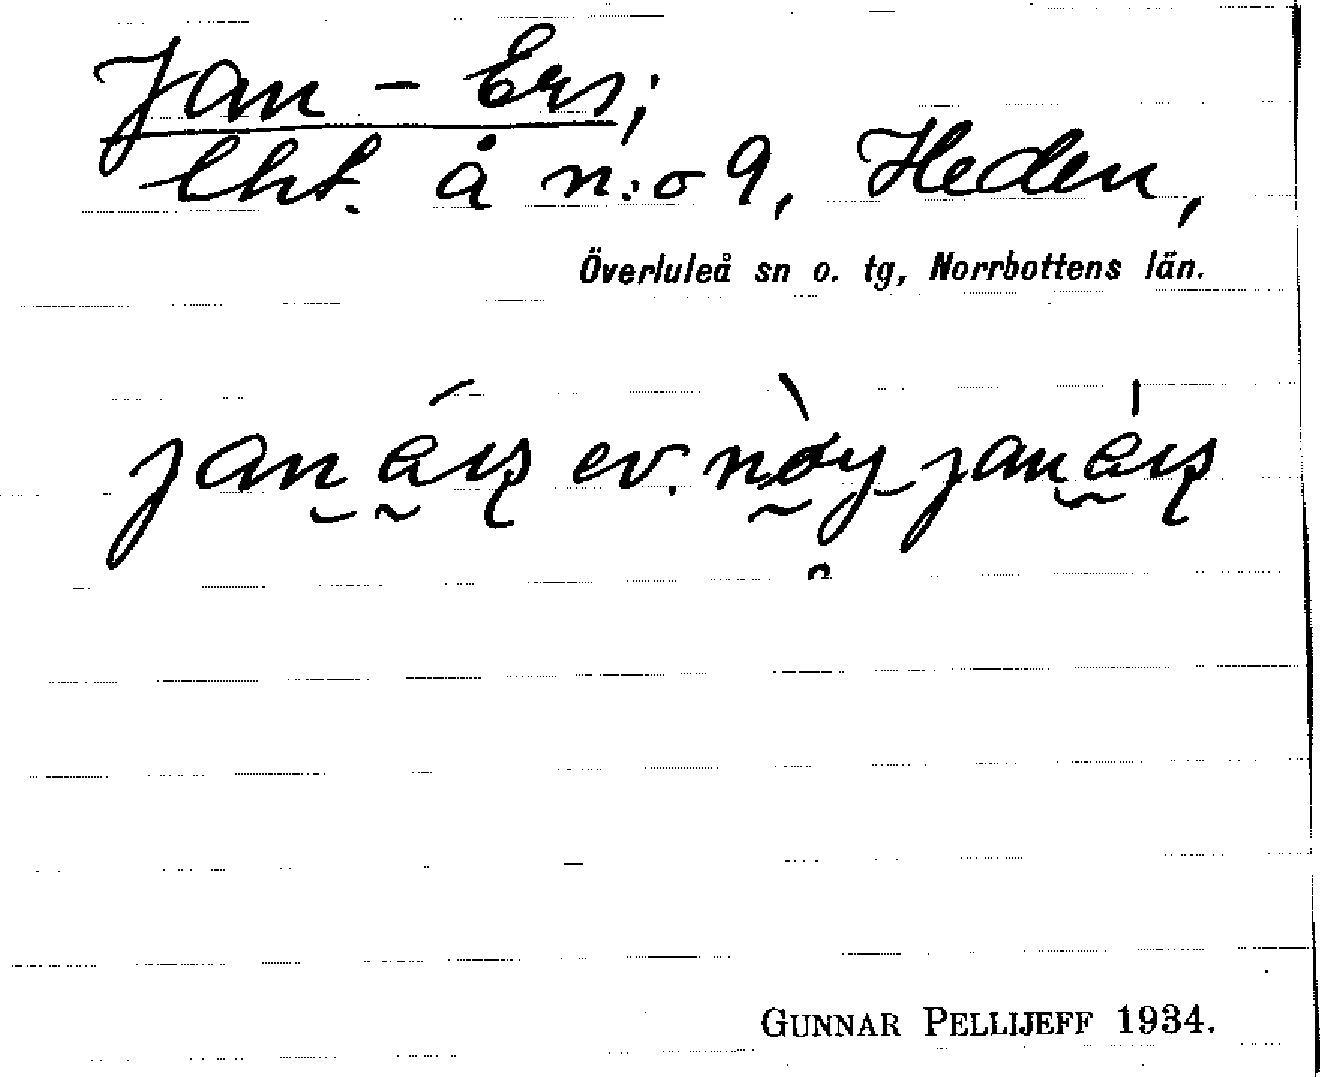 Jan-Ers;
lht. å n:o 9, Heden,
Överluleå sn o. tg, Norrbottens län.
ev.
GUNNAR PELLIJEFF 1934.